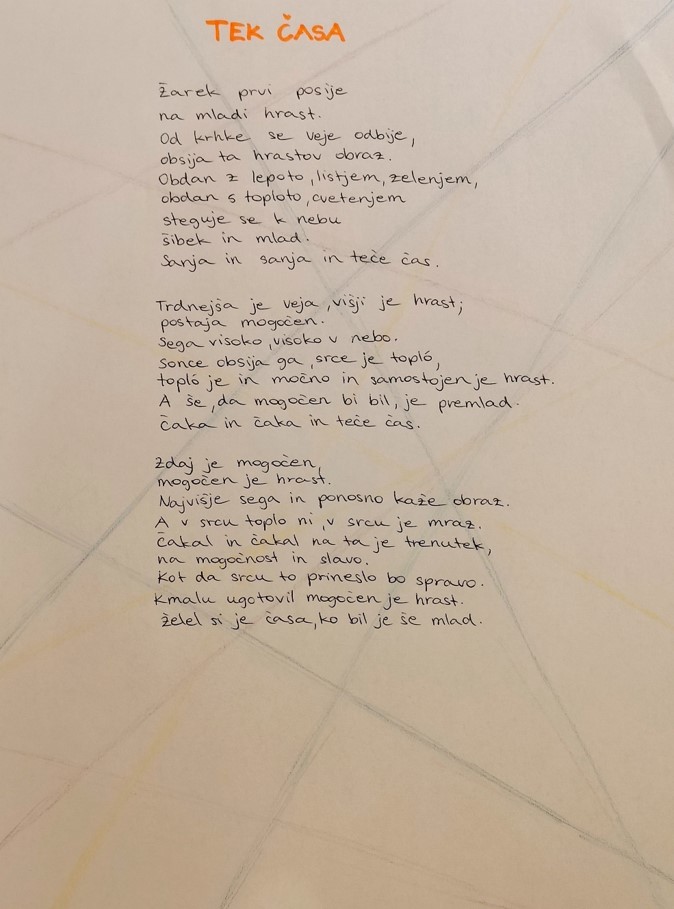 TEK ČASA
Žarek prvi posije
na mladi hrast.
Od krhke se veje odbije,
obsija ta hrastov obraz.
Obdan z lepoto, listjem, zelenjem,
obdan s toploto, cvetenjem
steguje se k nebu
šibek in mlad.
Sanja in sanja in teče čas.
Trdnejša je veja, višji je hrast;
postaja mogočen.
Sega visoko, visoko v nebo.
Sonce obsija ga, srce je topló,
topló je in močno in samostojen je hrast.
A še, da mogočen bi bil, je premlad.
Čaka in čaka in teče čas.
Zdaj je mogočen,
mogočen je hrast.
Najvišje sega in ponosno kaže obraz.
A v srcu toplo ni, v srcu je mraz.
Čakal in čakal na ta je trenutek,
na mogočnost in slavo.
Kot da srcu to prineslo bo spravo.
Kmalu ugotovil mogočen je hrast.
Želel si je časa, ko bil je še mlad.